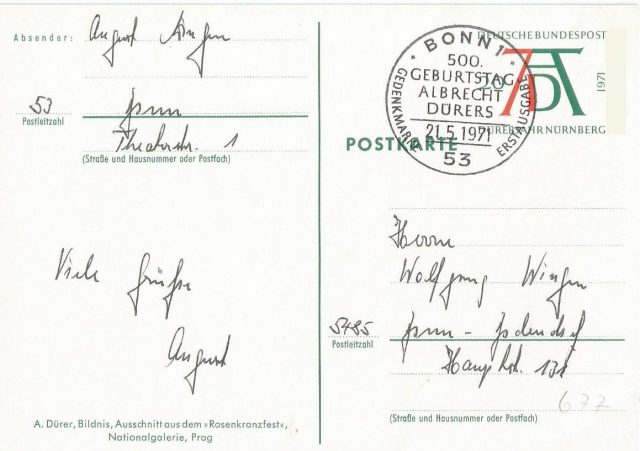 Absender: August Wingen
53 Bonn
Postleitzahl
Theaterstr. 1
(Straße und Hausnummer oder Postfach)
Viele Grüße
August
A. Dürer, Bildnis, Ausschnitt aus dem »Rosenkranzfest«,
Nationalgalerie, Prag
DEUTSCHE BUNDESPOST
20
1971
DÜRERJAHR NÜRNBERG
BONN 1
500.
GEBURTSTAG
ALBRECHT
DÜRERS
21.5.1971
53
GEDENKMARKE
ERSTAUSGABE
POSTKARTE
Herrn
Wolfgang Wingen
5485 Bonn -
Postleitzahl
Hauptstr. 131
(Straße und Hausnummer oder Postfach)
677